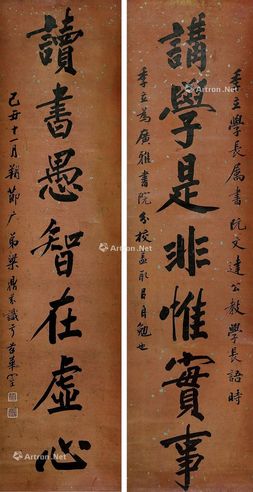 季立學長屬書阮文達公教學長語時
講學是非惟實事
季立為廣雅書院分校蓋取㠯自勉也
讀書愚智在虛心
己丑十一月朔節广弟梁鼎芬識于苕華室
Artron.Net
Artron.Net
Artron.Net
Artron.Net
Artron.Net
Artron.Net